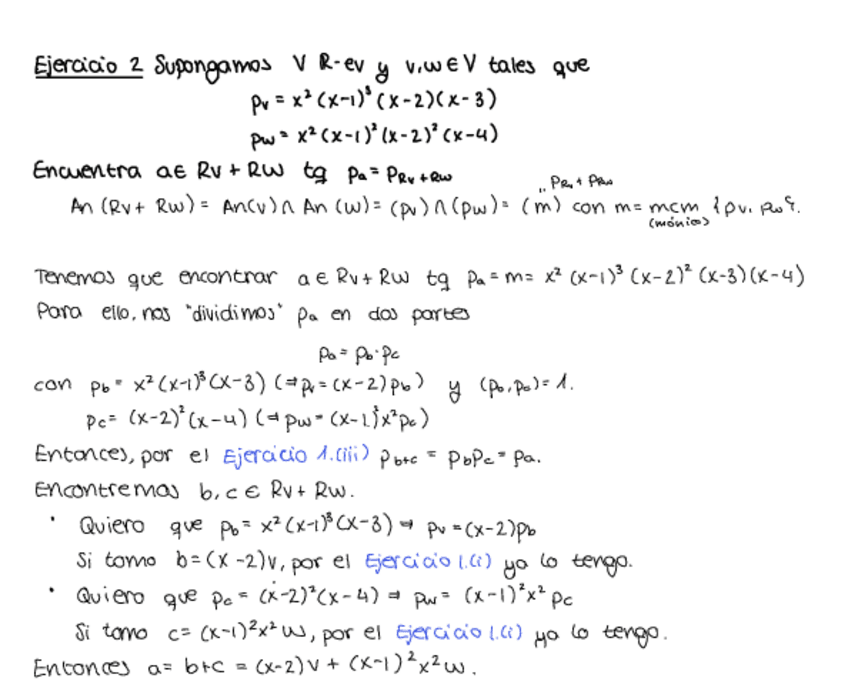 Ejercicio 2 Supongamos V R-ev y v,w ∈ V tales que
pv = x² (x-1)³ (x-2)(x-3)
pw = x² (x-1)² (x-2)² (x-4)
Encuentra a ∈ Rv + Rw tq pa = pRv+Rw
An (Rv + Rw) = An(v) ∩ An (w) = (pv) ∩ (pw) = (m) con m = mcm {pv, pw}.
(mónico)
Tenemos que encontrar a ∈ Rv + Rw tq pa = m = x² (x-1)³ (x-2)² (x-3)(x-4)
Para ello, nos "dividimos" pa en dos partes
pa = pb · pc
con pb = x² (x-1)³ (x-3) (⇒ pv = (x-2) pb) y (pb, pc) = 1.
pc = (x-2)² (x-4) (⇒ pw = (x-1)² x² pc)
Entonces, por el Ejercicio 1.(iii) pb+c = pb pc = pa.
Encontremos b, c ∈ Rv + Rw.
· Quiero que pb = x² (x-1)³ (x-3) ⇒ pv = (x-2) pb
Si tomo b = (x-2)v, por el Ejercicio 1.(i) ya lo tengo.
· Quiero que pc = (x-2)² (x-4) ⇒ pw = (x-1)² x² pc
Si tomo c = (x-1)² x² w, por el Ejercicio 1.(i) ya lo tengo.
Entonces a = b+c = (x-2) v + (x-1)² x² w.